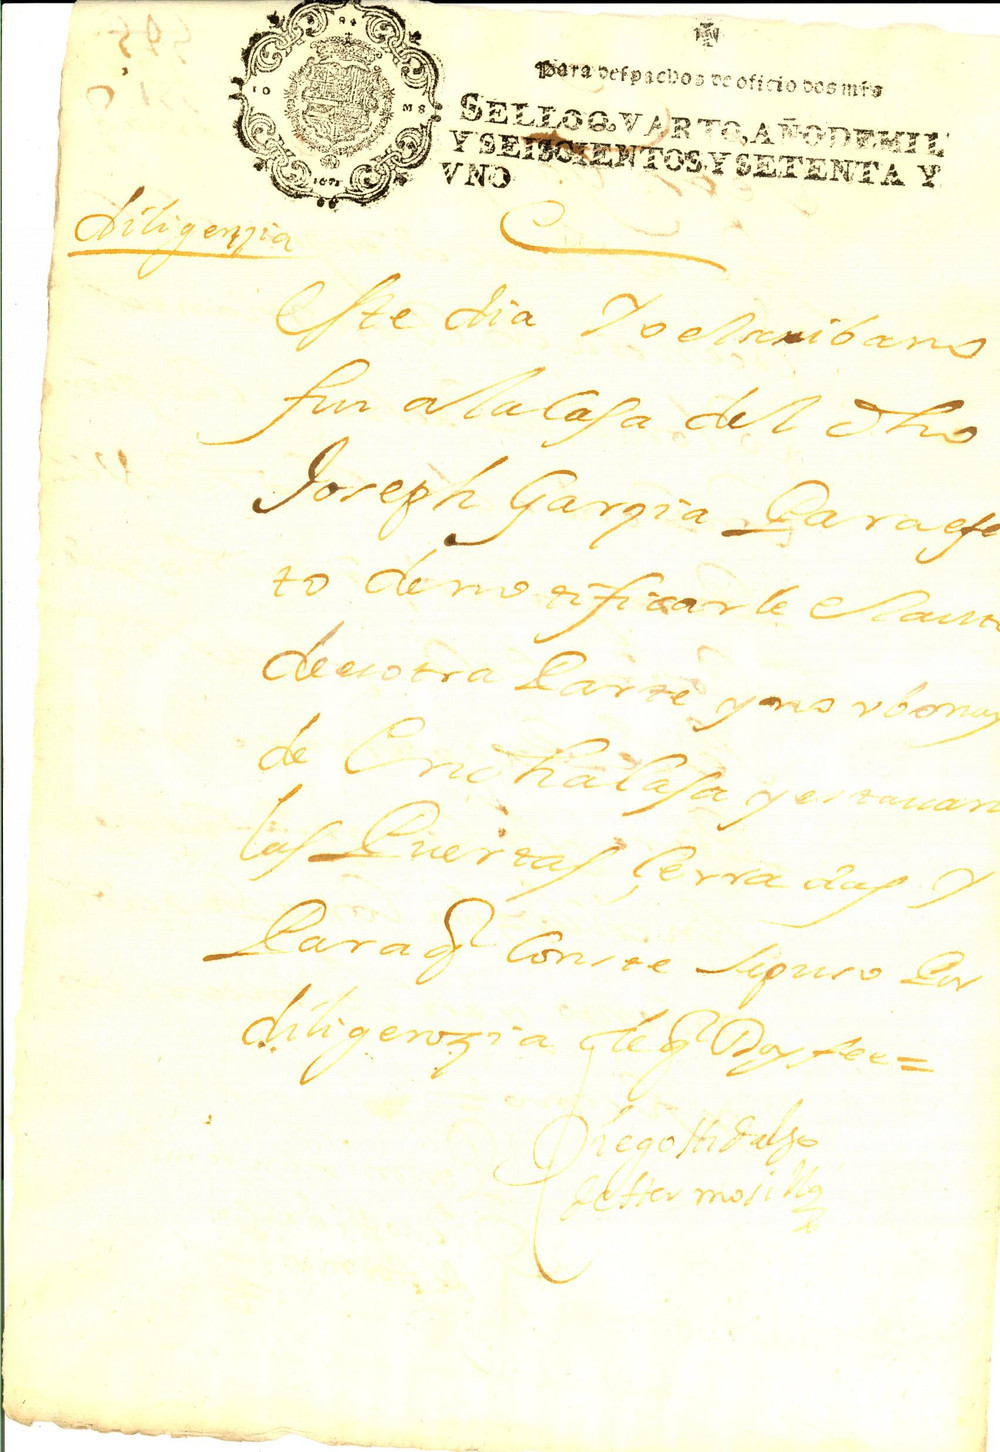 Para despachos de oficio dos mrs
SELLO QVARTO, AÑO DE MIL
Y SEISCIENTOS Y SETENTA Y
VNO
1671
diligenzia
Este dia Yo el scrivano
fui a la Casa del dho
Joseph Garzia Para efe
to de notificarle el auto
de esotra Parte y no vbo nay
de En dha Casa y estauan
las Puertas Zerradas Y
Para q Conste se puso Por
diligenzia de q Doy fee =
Diego Hidalgo
de Hermosilla